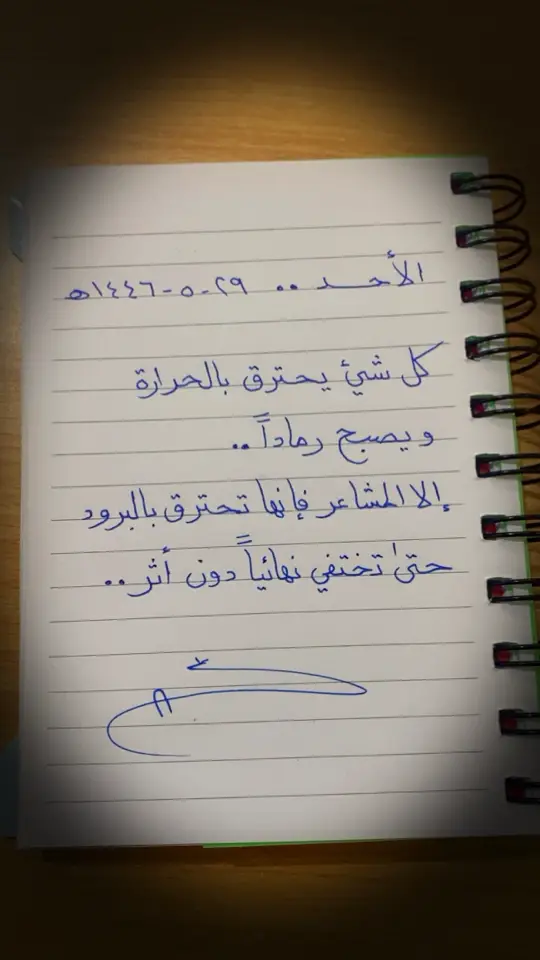 الأحد .. ٢٩-٥-١٤٤٦ه
كل شيئ يحترق بالحرارة
ويصبح رماداً ..
إلا المشاعر فإنها تحترق بالبرود
حتىٰ تختفي نهائياً دون أثر ..